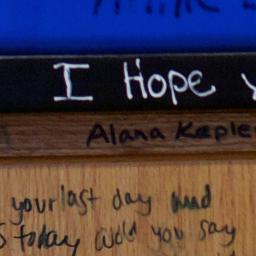 I Hope
Alana Kepler
your last day and
today would you say